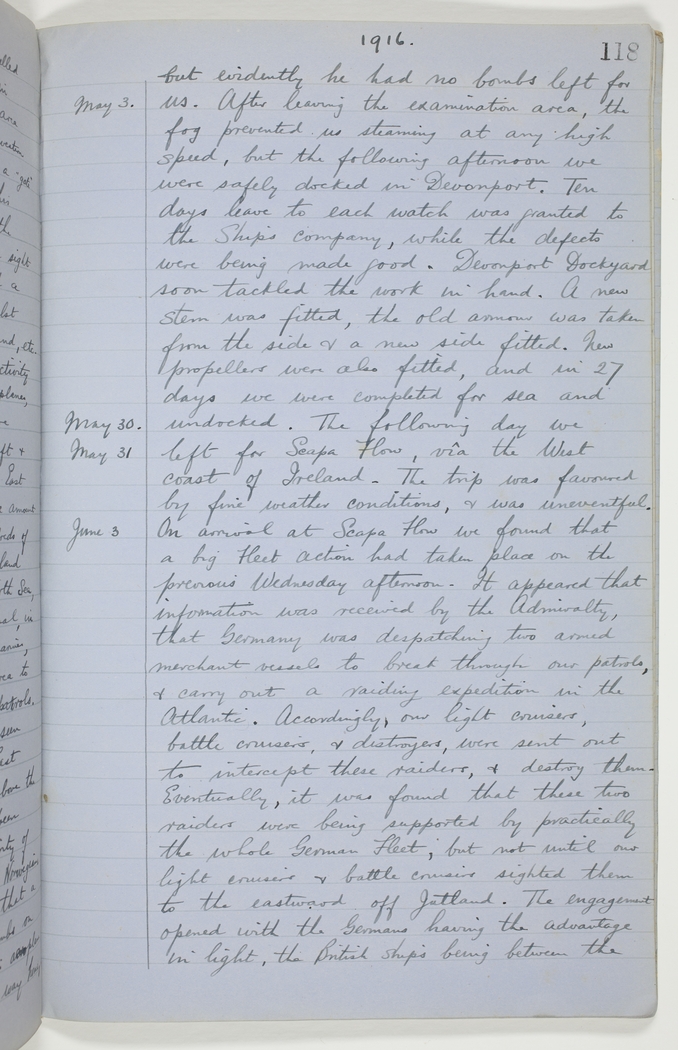 1916.
118
but evidently he had no bombs left for
May 3. us. After leaving the examination area, the
fog prevented us steaming at any high
speed, but the following afternoon we
were safely docked in Devonport. Ten
days leave to each watch was granted to
the Ships company, while the defects
were being made good. Devonport Dockyard
soon tackled the work in hand. A new
stem was fitted, the old armour was taken
from the side & a new side fitted. New
propellers were also fitted, and in 27
days we were completed for sea and
May 30. undocked. The following day we
May 31 left for Scapa Flow, viâ the West
coast of Ireland - The trip was favoured
by fine weather conditions, & was uneventful.
June 3 On arrival at Scapa Flow we found that
a big Fleet action had taken place on the
previous Wednesday afternoon. It appeared that
information was received by the Admiralty,
that Germany was despatching two armed
merchant vessels to break through our patrols,
& carry out a raiding expedition in the
Atlantic. Accordingly, our light cruisers,
battle cruisers, & destroyers, were sent out
to intercept these raiders, & destroy them.
Eventually, it was found that these two
raiders were being supported by practically
the whole German Fleet; but not until our
light cruisers & battle cruisers sighted them
to the eastward off Jutland. The engagement
opened with the Germans having the advantage
in light, the British ships being between the